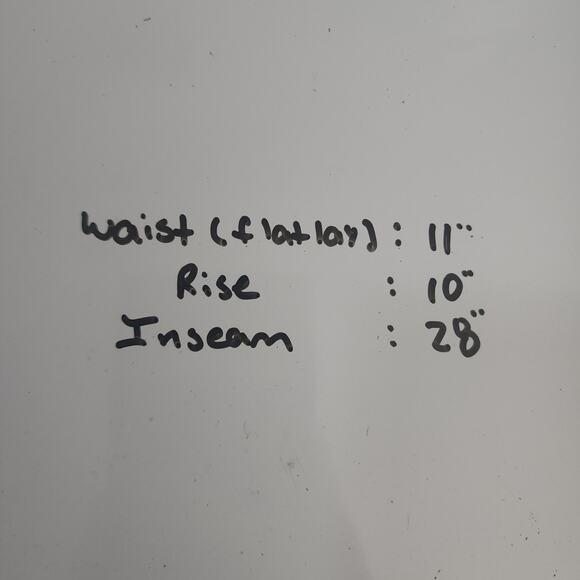 Waist (flatlay) : 11"
Rise : 10"
Inseam : 28"